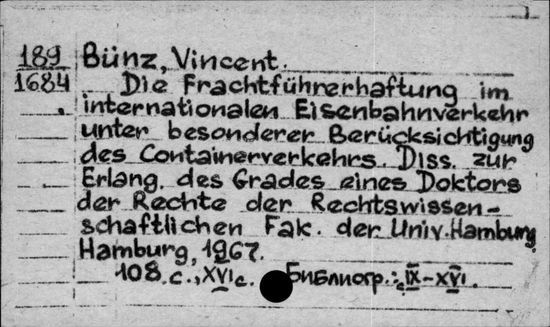 189 Bünz, Vincent.
1684 Die Frachtführerhaftung im
internationalen Eisenbahnverkehr
unter besonderer Berücksichtigung
des Containerverkehrs. Diss. zur
Erlang. des Grades eines Doktors
der Rechte der Rechtswissen-
schaftlichen Fak. der Univ. Hamburg
Hamburg, 1967.
108 с., XVI с. Библиогр.: с. IX-XVI.